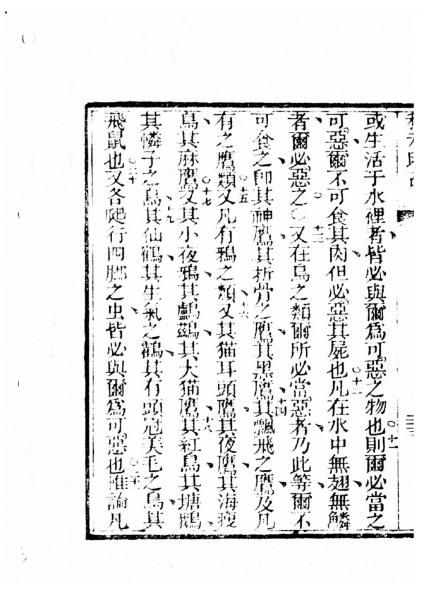 或生活于水裡者皆必與爾爲可惡之物也則爾必當之
十一
可惡爾不可食其肉但必惡其屍也凡在水中無翅無鱗
十二
者爾必惡之○又在鳥之類爾所必當惡者乃此等爾不
十三
可食之即其神鷹其折骨之鷹其黑鷹其飄飛之鷹及凡
十四
有之鷹類又凡有鴉之類又其猫耳頭鷹其夜鷹其海
十五
十六
鳥其麻鷹又其小夜鴉其鸕鷀其大猫鷹其紅鳥其塘鵝
十七
十八
其憐子之鳥其仙鶴其生氣之鸛其有頭冠美毛之鳥其
十九
飛鼠也又各爬行四脚之虫皆必與爾爲可惡也雖論凡
二十